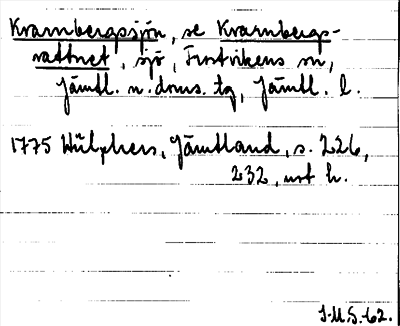 Kvarnbergssjön, se Kvarnbergs-
vattnet, sjö, Frostvikens sn,
Jämtl. n. doms. tg, Jämtl. l.
1775 Hülphers, Jämtland, s. 226,
232, utst h.
J.M.S.-62.